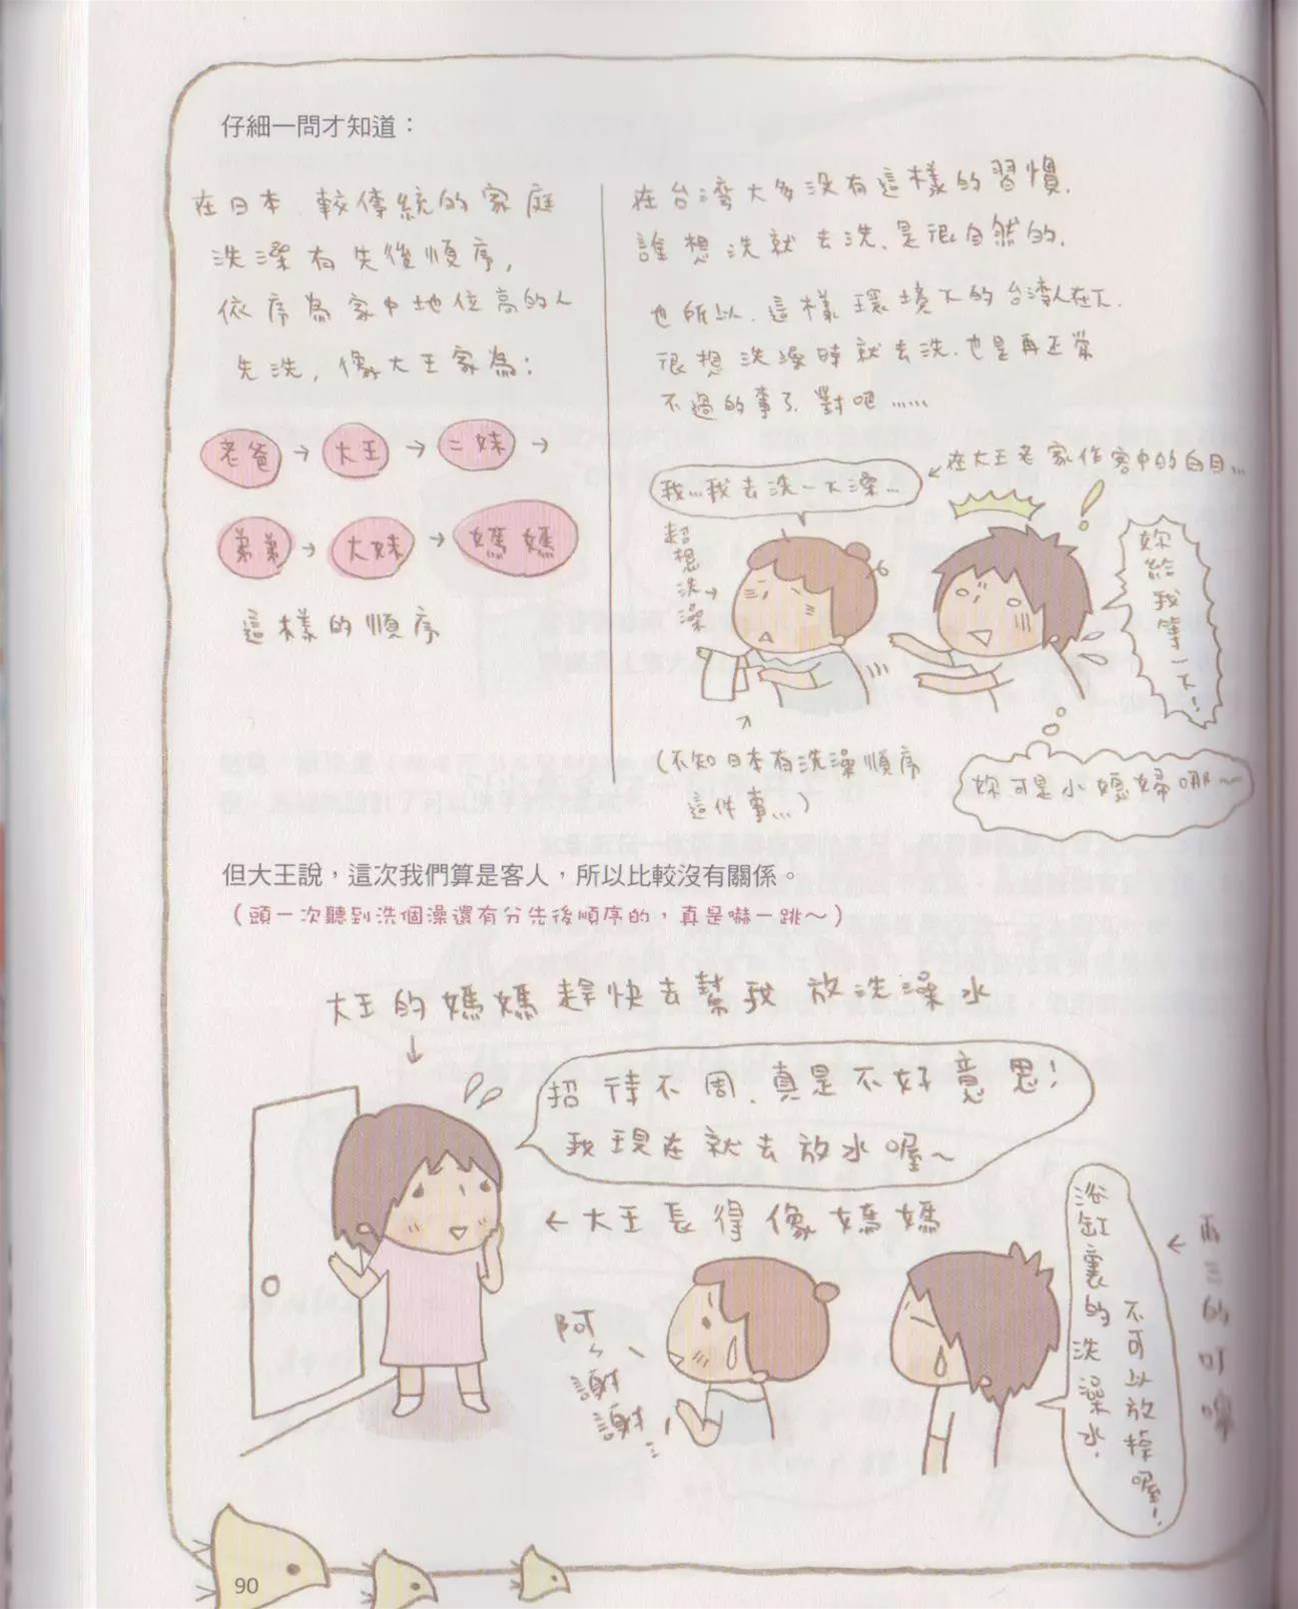 仔細一問才知道：
在日本、較傳統的家庭
洗澡有先後順序，
依序為家中地位高的人
先洗，像大王家為：
老爸→大王→二妹→
弟弟→大妹→媽媽
這樣的順序
在台灣大多沒有這樣的習慣、
誰想洗就去洗、是很自然的、
也所以、這樣環境下的台灣人在下、
很想洗澡時就去洗、也是再正常
不過的事了、對吧……
←在大王老家作客中的白目…
我…我去洗一下澡…
超想洗澡→
妳給我等一下！
(不知日本有洗澡順序
這件事…)
妳可是小媳婦哪～
但大王說，這次我們算是客人，所以比較沒有關係。
（頭一次聽到洗個澡還有分先後順序的，真是嚇一跳～）
大王的媽媽趕快去幫我放洗澡水
招待不周、真是不好意思！
我現在就去放水喔～
←大王長得像媽媽
阿、
謝謝…
浴缸裏的洗澡水、
不可以放掉喔！
←再三的叮嚀
90